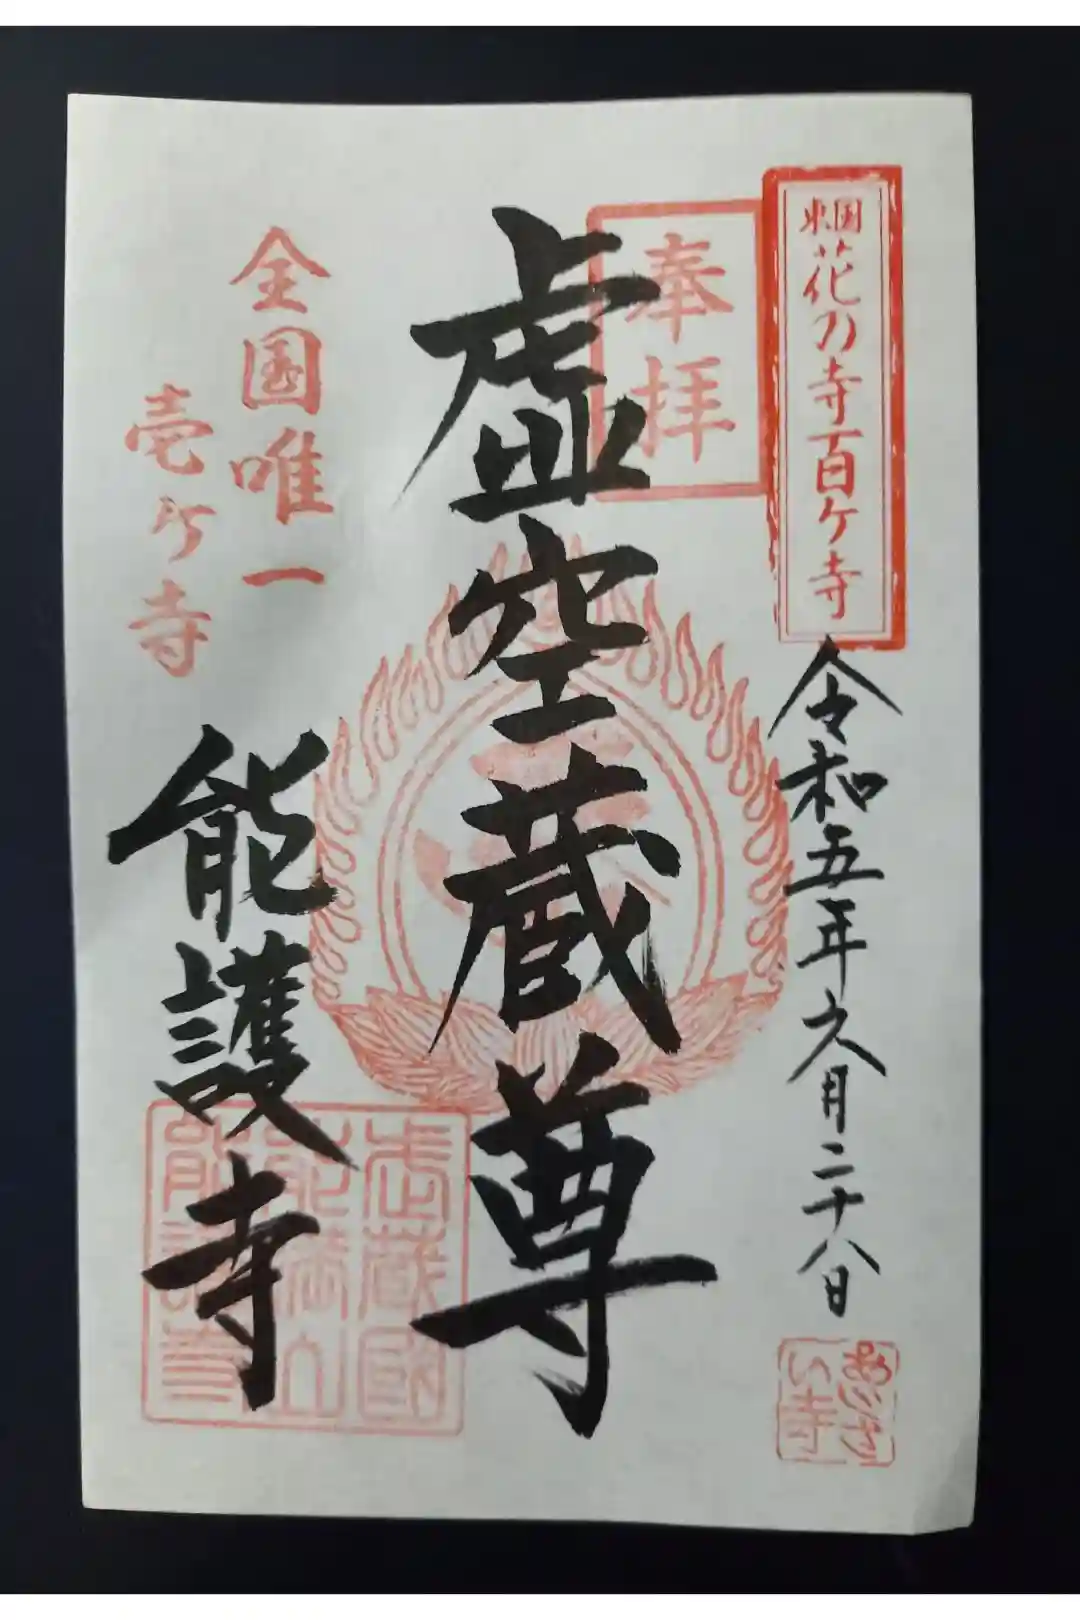 東国花の寺百ヶ寺
令和五年六月二十八日
あじさい寺
奉拝
虚空蔵尊
全国唯一
壱ヶ寺
能護寺
武蔵國
能満山
能護寺